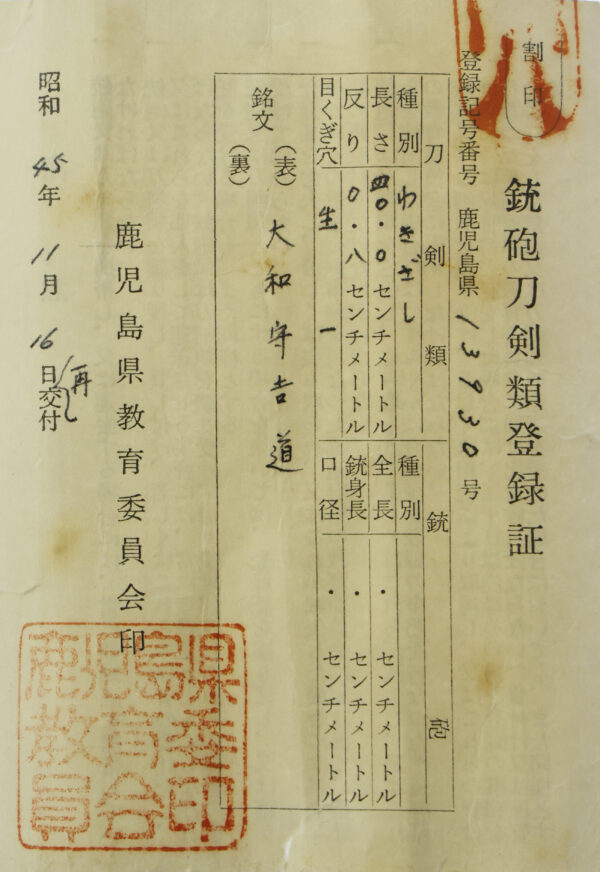 銃砲刀剣類登録証
割印
登録記号番号 鹿児島県 13930号
刀剣類
種別 わきざし
長さ 四0.0センチメートル
反り 0.八センチメートル
目くぎ穴 生 一
銃砲
種別
全長 ・ センチメートル
銃身長 ・ センチメートル
口径 ・ センチメートル
銘文
(表) 大和守吉道
(裏)
鹿児島県教育委員会印
昭和45年11月16日再交付
鹿児島県
教育委
員会印